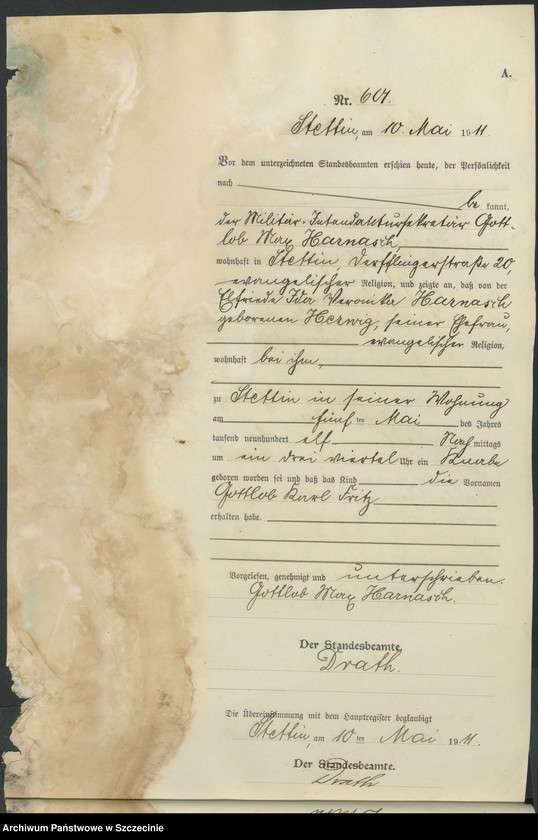 A.
Nr. 601.
Stettin, am 10. Mai 1911
Vor dem unterzeichneten Standesbeamten erschien heute, der Persönlichkeit
nach be kannt,
der Militär-Intendantursekretär Gott-
lob Max Harnasch,
wohnhaft in Stettin, Derfflingerstraße 20,
evangelischer Religion, und zeigte an, daß von der
Elfriede Ida Veronika Harnasch
geborenen Herwig, seiner Ehefrau,
evangelischer Religion,
wohnhaft bei ihm,
zu Stettin in seiner Wohnung
am fünf ten Mai des Jahres
tausend neunhundert elf Nach mittags
um ein drei viertel Uhr ein Knabe
geboren worden sei und daß das Kind die Vornamen
Gottlob Karl Fritz
erhalten habe.
Vorgelesen, genehmigt und unterschrieben.
Gottlob Max Harnasch.
Der Standesbeamte.
Drath.
Die Übereinstimmung mit dem Hauptregister beglaubigt
Stettin, am 10 ten Mai 1911.
Der Standesbeamte.
Drath
Archiwum Państwowe w Szczecinie